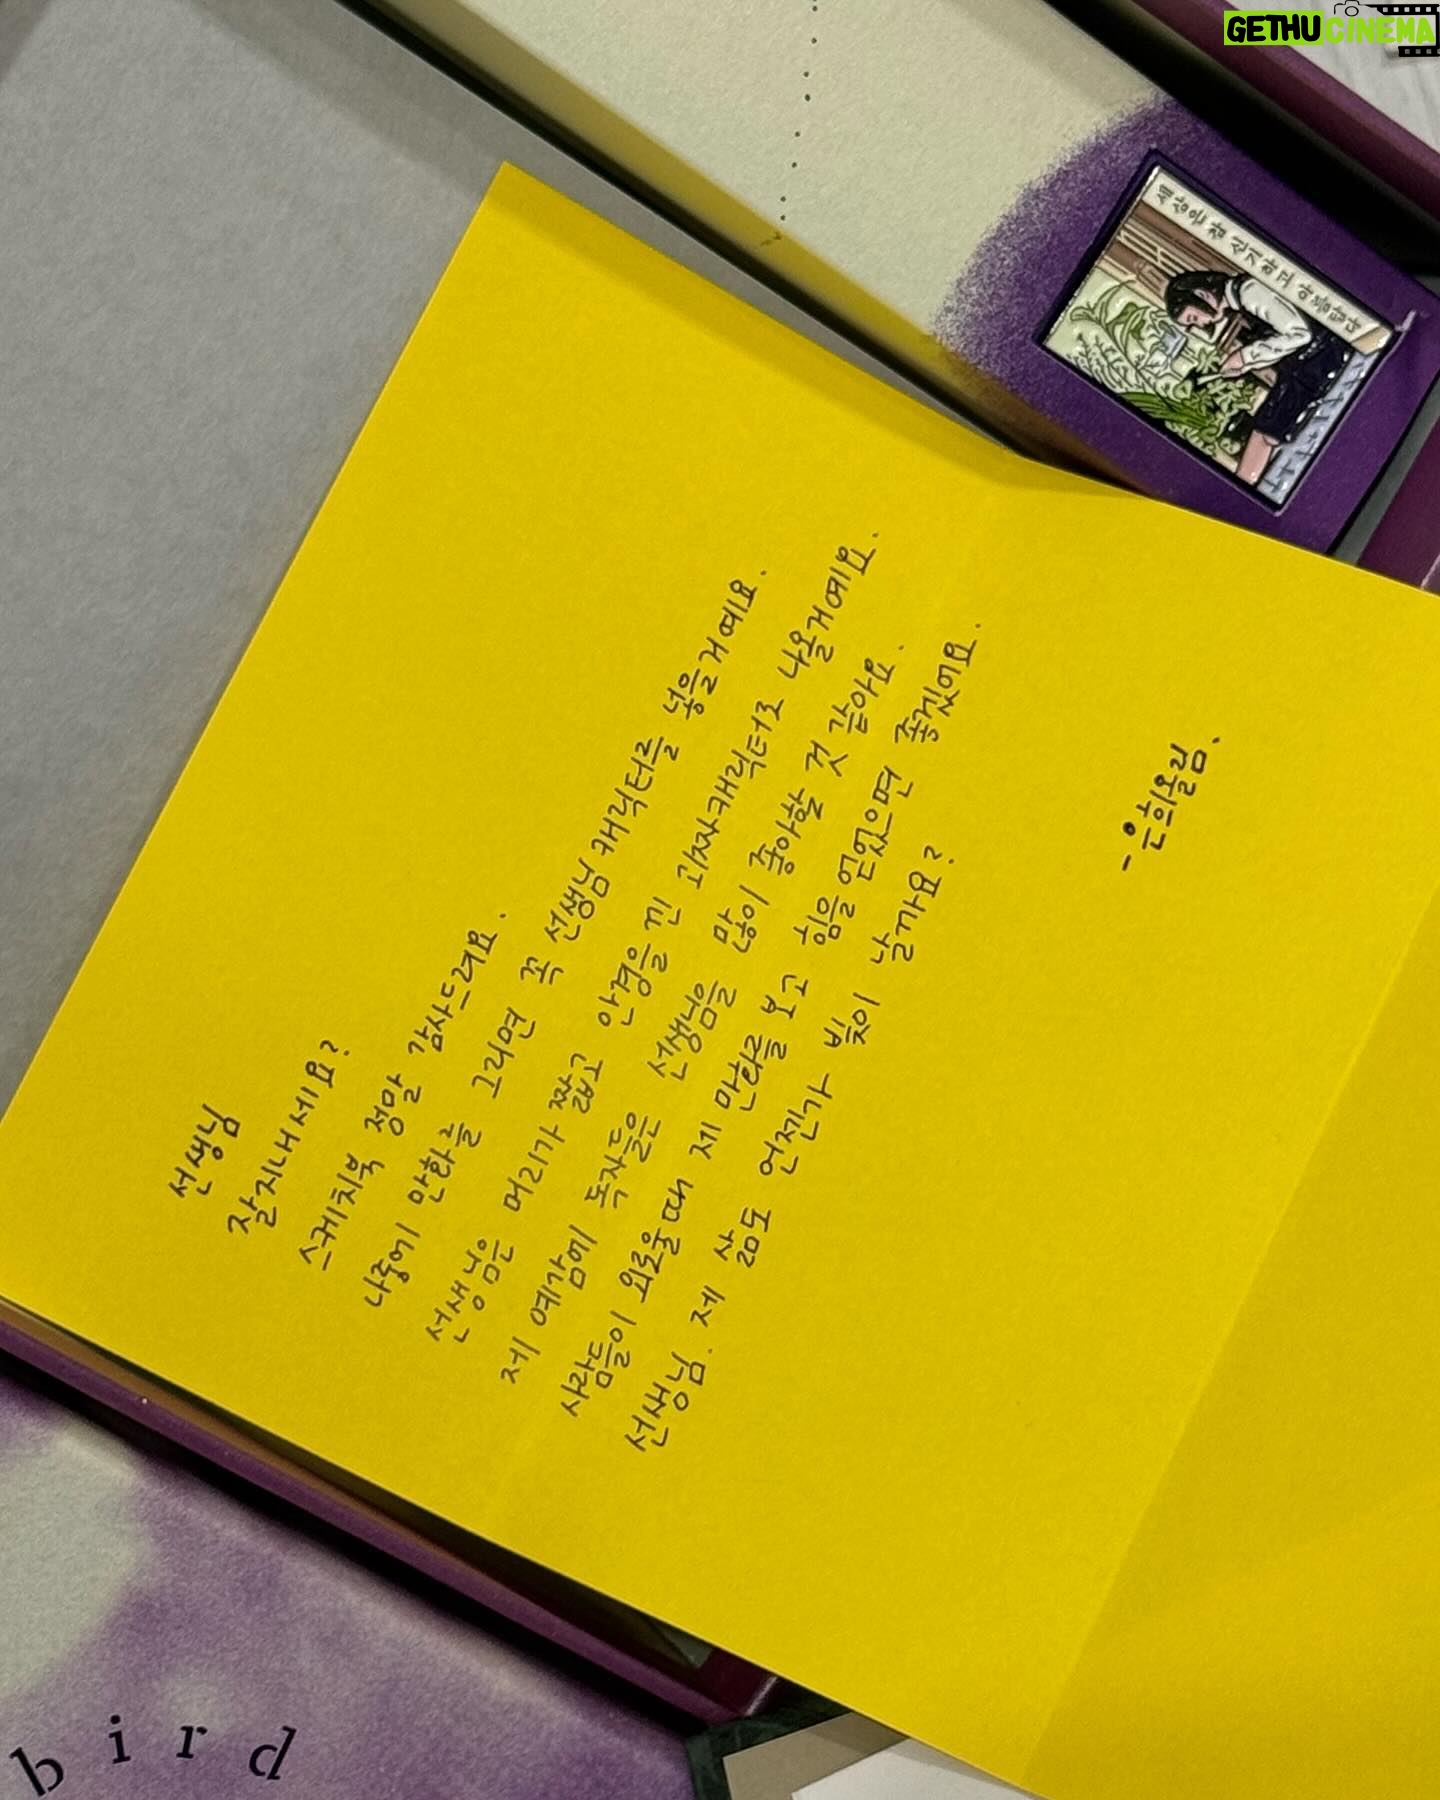 GETHU CINEMA
세상은 참 신기하고 아름답다
선생님
잘지내세요?
스케치북 정말 감사드려요.
나중에 만화를 그리면 꼭 선생님 캐릭터를 넣을거예요.
선생님은 머리가 짧고 안경을 낀 괴짜캐릭터로 나올거예요.
제 예감에 독자들은 선생님을 많이 좋아할 것 같아요.
사람들이 외로울때 제 만화를 보고 힘을 얻었으면 좋겠어요.
선생님. 제 삶도 언젠가 빛이 날까요?
- 은희올림.
bird